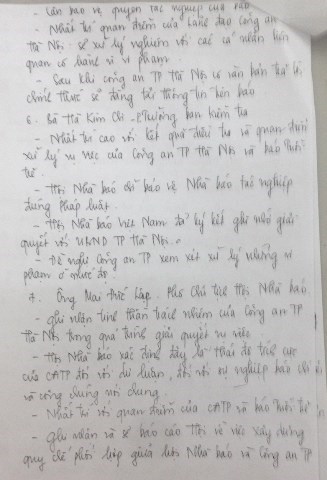 - Cần bảo vệ quyền tác nghiệp của báo
- Nhất trí quan điểm của Lãnh đạo Công an
TP Hà Nội. sẽ xử lý nghiêm với các cá nhân liên
quan có hành vi vi phạm
- Sau khi Công an TP Hà Nội có văn bản trả lời
chính thức sẽ đăng tải thông tin trên báo
6. Bà Hà Kim Chi - Trưởng ban kiểm tra
- Nhất trí cao với kết quả điều tra và quan điểm
xử lý vụ việc của Công an TP Hà Nội và báo Tuổi
trẻ.
- Hội Nhà báo chỉ bảo vệ Nhà báo tác nghiệp
đúng Pháp luật.
- Hội Nhà báo Việt Nam đã ký kết ghi nhớ giải
quyết với UBND TP Hà Nội.
- Đề nghị Công an TP xem xét xử lý những vi
phạm ở mức
7. Ông Mai Đức Lộc. Phó Chủ tịch Hội Nhà báo
- ghi nhận tinh thần trách nhiệm của Công an TP
Hà Nội trong quá trình giải quyết vụ việc.
- Hội Nhà báo xác định đây là thái độ tích cực
của CATP đối với dư luận, đối với sự nghiệp báo chí
và công chúng nói chung.
- Nhất trí với quan điểm của CATP và báo Tuổi trẻ
- ghi nhận và sẽ báo cáo Hội về việc xây dựng
quy chế phối hợp giữa Hội Nhà báo và Công an TP